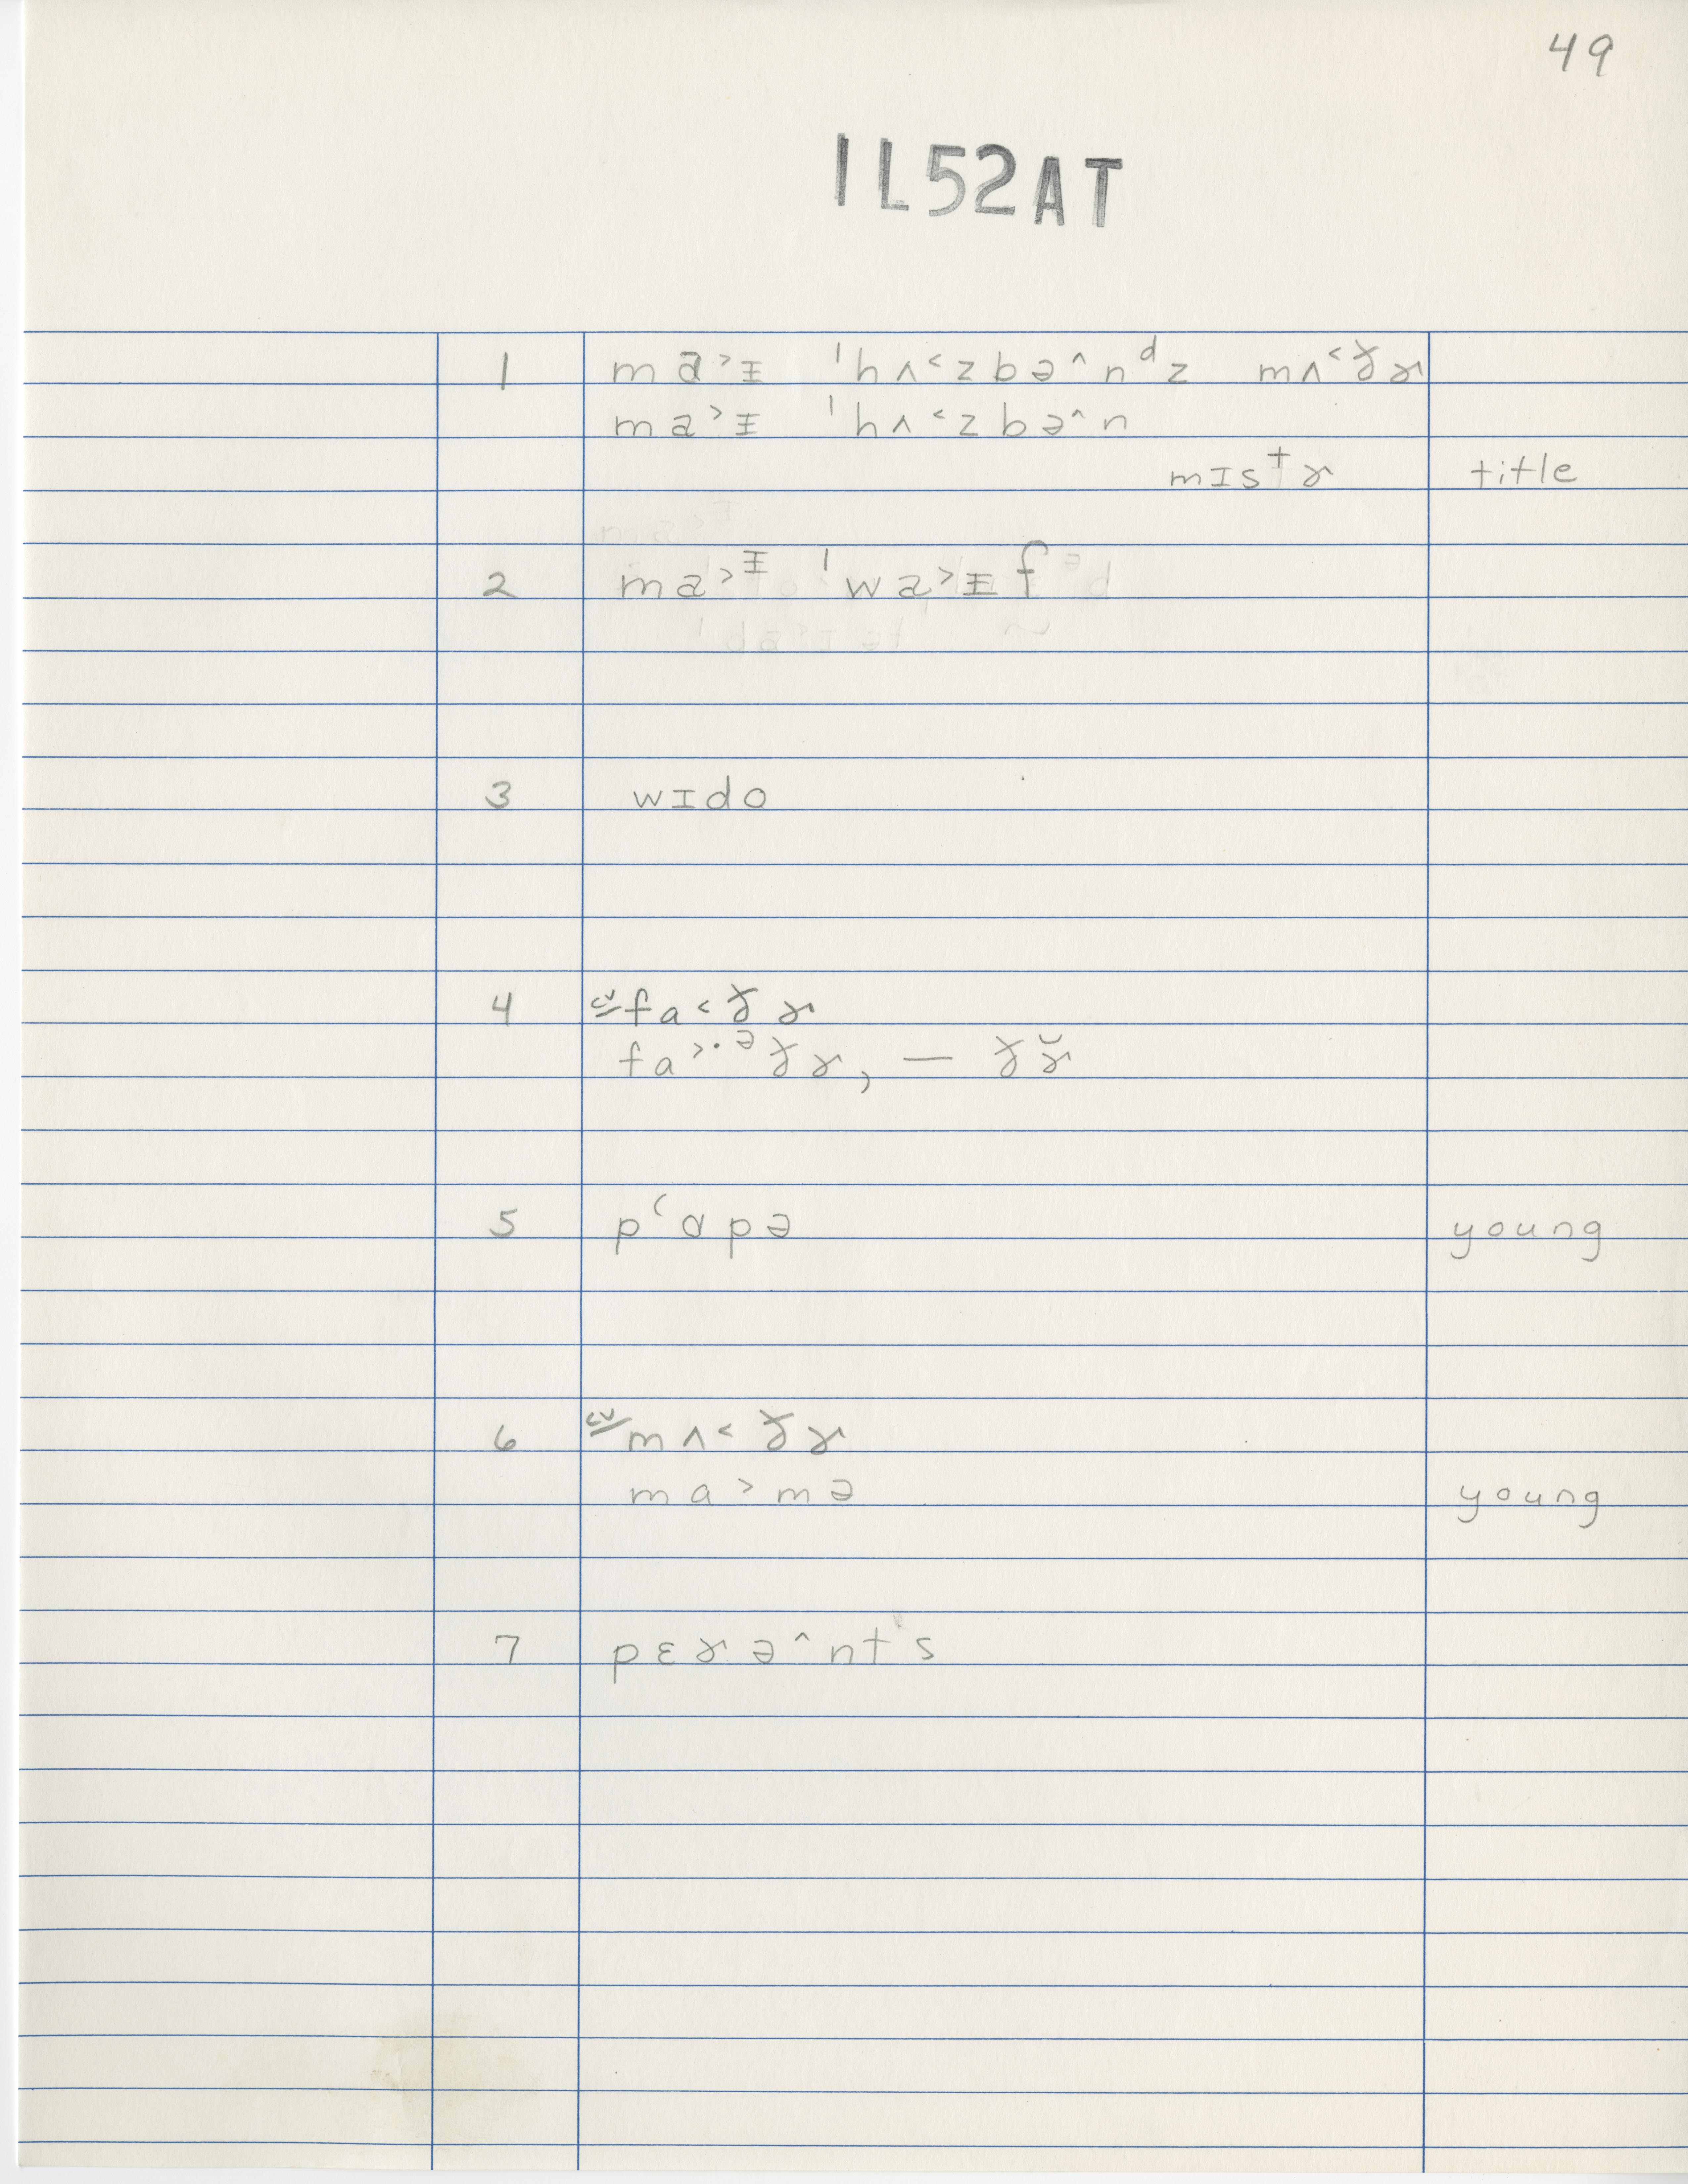 49
1L52AT
1 ma˃ᵻ ˈhʌ˂zbə^nᵈz mʌ˂ðɚ
ma˃ᵻ ˈhʌ˂zbə^n
mɪsᵗɚ title
2 ma˃ᵻ ˈwa˃ᵻf
3 wɪdo
4 cv fa˂ðɚ
fa˃·ᵊðɚ, — ðɚ̆
5 pʻɑpə young
6 cv mʌ˂ðɚ
ma˃mə young
7 pɛɚə^ntʼs